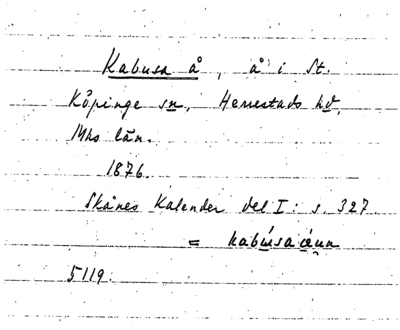 Kabusa å, å i St.
Köpinge sn, Herrestads hd,
Mhs län.
1876.
Skånes Kalender del I: s. 327
= kabúsa
5119.